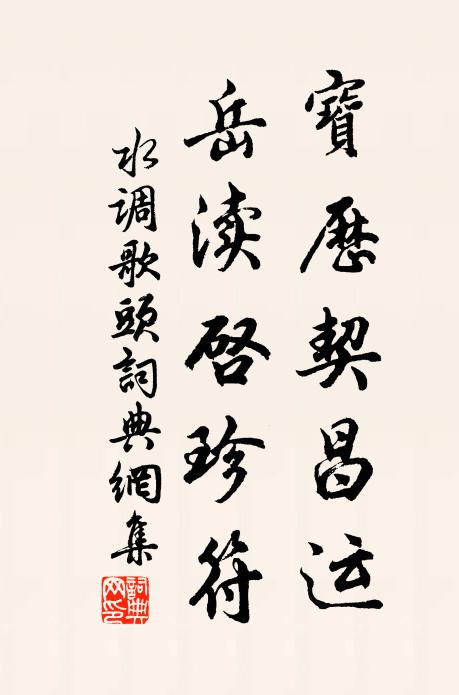 寶歷契昌运
岳渎啓珍符
水调歌頭詞典網集
詞典网印